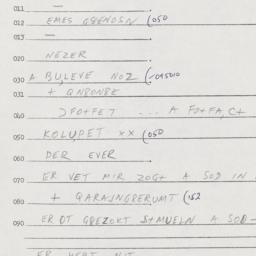 011 —
012 EMES GBENOSN (050
013 —
020 NEZER
030 A BULEVE NOZ (-015010
031 + QNBONBE
040 ) FO+FE7 ... A FO+FA, C+
050 KOLUPET xx (050
060 DER EVER
070 ER VET MIR ZOG+ A SOD IN
080 + QARAJNGRERUMT (152
090 ER OT GBEZOKT S+MUELN A SOD-
ER HEBT MIT